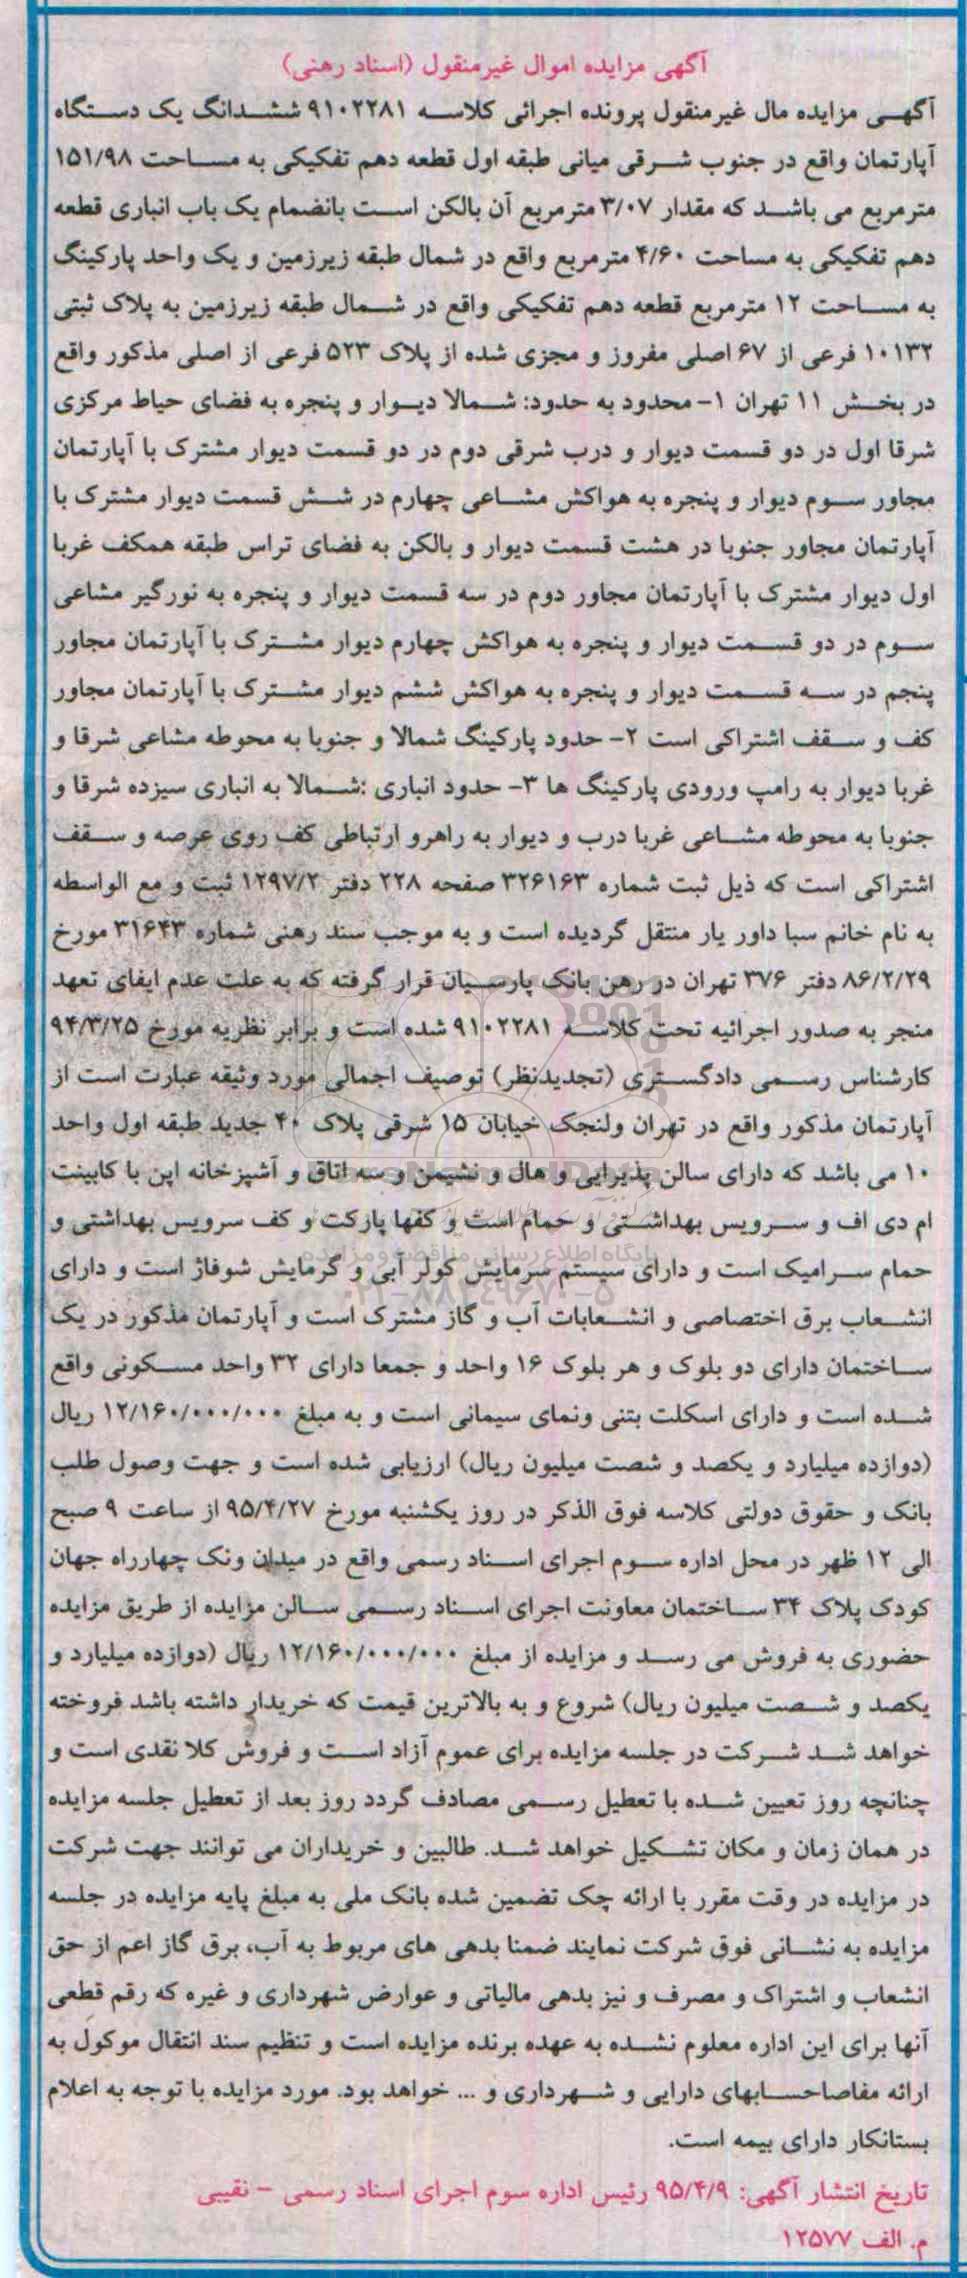 آگهی مزایده اموال غیرمنقول (اسناد رهنی)
آگهی مزایده مال غیرمنقول پرونده اجرائی کلاسه ۹۱۰۲۲۸۱ ششدانگ یک دستگاه
آپارتمان واقع در جنوب شرقی میانی طبقه اول قطعه دهم تفکیکی به مساحت ۱۵۱/۹۸
مترمربع می باشد که مقدار ۳/۰۷ مترمربع آن بالکن است بانضمام یک باب انباری قطعه
دهم تفکیکی به مساحت ۴/۶۰ مترمربع واقع در شمال طبقه زیرزمین و یک واحد پارکینگ
به مساحت ۱۲ مترمربع قطعه دهم تفکیکی واقع در شمال طبقه زیرزمین به پلاک ثبتی
۱۰۱۳۲ فرعی از ۶۷ اصلی مفروز و مجزی شده از پلاک ۵۲۳ فرعی از اصلی مذکور واقع
در بخش ۱۱ تهران ۱- محدود به حدود: شمالا دیوار و پنجره به فضای حیاط مرکزی
شرقا اول در دو قسمت دیوار و درب شرقی دوم در دو قسمت دیوار مشترک با آپارتمان
مجاور سوم دیوار و پنجره به هواکش مشاعی چهارم در شش قسمت دیوار مشترک با
آپارتمان مجاور جنوبا در هشت قسمت دیوار و بالکن به فضای تراس طبقه همکف غربا
اول دیوار مشترک با آپارتمان مجاور دوم در سه قسمت دیوار و پنجره به نورگیر مشاعی
سوم در دو قسمت دیوار و پنجره به هواکش چهارم دیوار مشترک با آپارتمان مجاور
پنجم در سه قسمت دیوار و پنجره به هواکش ششم دیوار مشترک با آپارتمان مجاور
کف و سقف اشتراکی است ۲- حدود پارکینگ شمالا و جنوبا به محوطه مشاعی شرقا و
غربا دیوار به رامپ ورودی پارکینگ ها ۳- حدود انباری :شمالا به انباری سیزده شرقا و
جنوبا به محوطه مشاعی غربا درب و دیوار به راهرو ارتباطی کف روی عرصه و سقف
اشتراکی است که ذیل ثبت شماره ۳۲۶۱۶۳ صفحه ۲۲۸ دفتر ۱۲۹۷/۲ ثبت و مع الواسطه
به نام خانم سبا داور یار منتقل گردیده است و به موجب سند رهنی شماره ۳۱۶۴۳ مورخ
۸۶/۲/۲۹ دفتر ۳۷۶ تهران در رهن بانک پارسیان قرار گرفته که به علت عدم ایفای تعهد
منجر به صدور اجرائیه تحت کلاسه ۹۱۰۲۲۸۱ شده است و برابر نظریه مورخ ۹۴/۳/۲۵
کارشناس رسمی دادگستری (تجدیدنظر) توصیف اجمالی مورد وثیقه عبارت است از
آپارتمان مذکور واقع در تهران ولنجک خیابان ۱۵ شرقی پلاک ۴۰ جدید طبقه اول واحد
۱۰ می باشد که دارای سالن پذیرایی و هال و نشیمن و سه اتاق و آشپزخانه اپن با کابینت
ام دی اف و سرویس بهداشتی و حمام است و کفها پارکت و کف سرویس بهداشتی و
حمام سرامیک است و دارای سیستم سرمایش کولر آبی و گرمایش شوفاژ است و دارای
انشعاب برق اختصاصی و انشعابات آب و گاز مشترک است و آپارتمان مذکور در یک
ساختمان دارای دو بلوک و هر بلوک ۱۶ واحد و جمعا دارای ۳۲ واحد مسکونی واقع
شده است و دارای اسکلت بتنی ونمای سیمانی است و به مبلغ ۱۲/۱۶۰/۰۰۰/۰۰۰ ریال
(دوازده میلیارد و یکصد و شصت میلیون ریال) ارزیابی شده است و جهت وصول طلب
بانک و حقوق دولتی کلاسه فوق الذکر در روز یکشنبه مورخ ۹۵/۴/۲۷ از ساعت ۹ صبح
الی ۱۲ ظهر در محل اداره سوم اجرای اسناد رسمی واقع در میدان ونک چهارراه جهان
کودک پلاک ۳۴ ساختمان معاونت اجرای اسناد رسمی سالن مزایده از طریق مزایده
حضوری به فروش می رسد و مزایده از مبلغ ۱۲/۱۶۰/۰۰۰/۰۰۰ ریال (دوازده میلیارد و
یکصد و شصت میلیون ریال) شروع و به بالاترین قیمت که خریدار داشته باشد فروخته
خواهد شد شرکت در جلسه مزایده برای عموم آزاد است و فروش کلا نقدی است و
چنانچه روز تعیین شده با تعطیل رسمی مصادف گردد روز بعد از تعطیل جلسه مزایده
در همان زمان و مکان تشکیل خواهد شد. طالبین و خریداران می توانند جهت شرکت
در مزایده در وقت مقرر با ارائه چک تضمین شده بانک ملی به مبلغ پایه مزایده در جلسه
مزایده به نشانی فوق شرکت نمایند ضمنا بدهی های مربوط به آب، برق گاز اعم از حق
انشعاب و اشتراک و مصرف و نیز بدهی مالیاتی و عوارض شهرداری و غیره که رقم قطعی
آنها برای این اداره معلوم نشده به عهده برنده مزایده است و تنظیم سند انتقال موکول به
ارائه مفاصاحسابهای دارایی و شهرداری و ... خواهد بود. مورد مزایده با توجه به اعلام
بستانکار دارای بیمه است.
تاریخ انتشار آگهی: ۹۵/۴/۹ رئیس اداره سوم اجرای اسناد رسمی - نقیبی
م. الف ۱۲۵۷۷
پایگاه اطلاع رسانی مناقصه و مزایده
۰۲۱-۸۸۳۴۹۶۷۰-۵